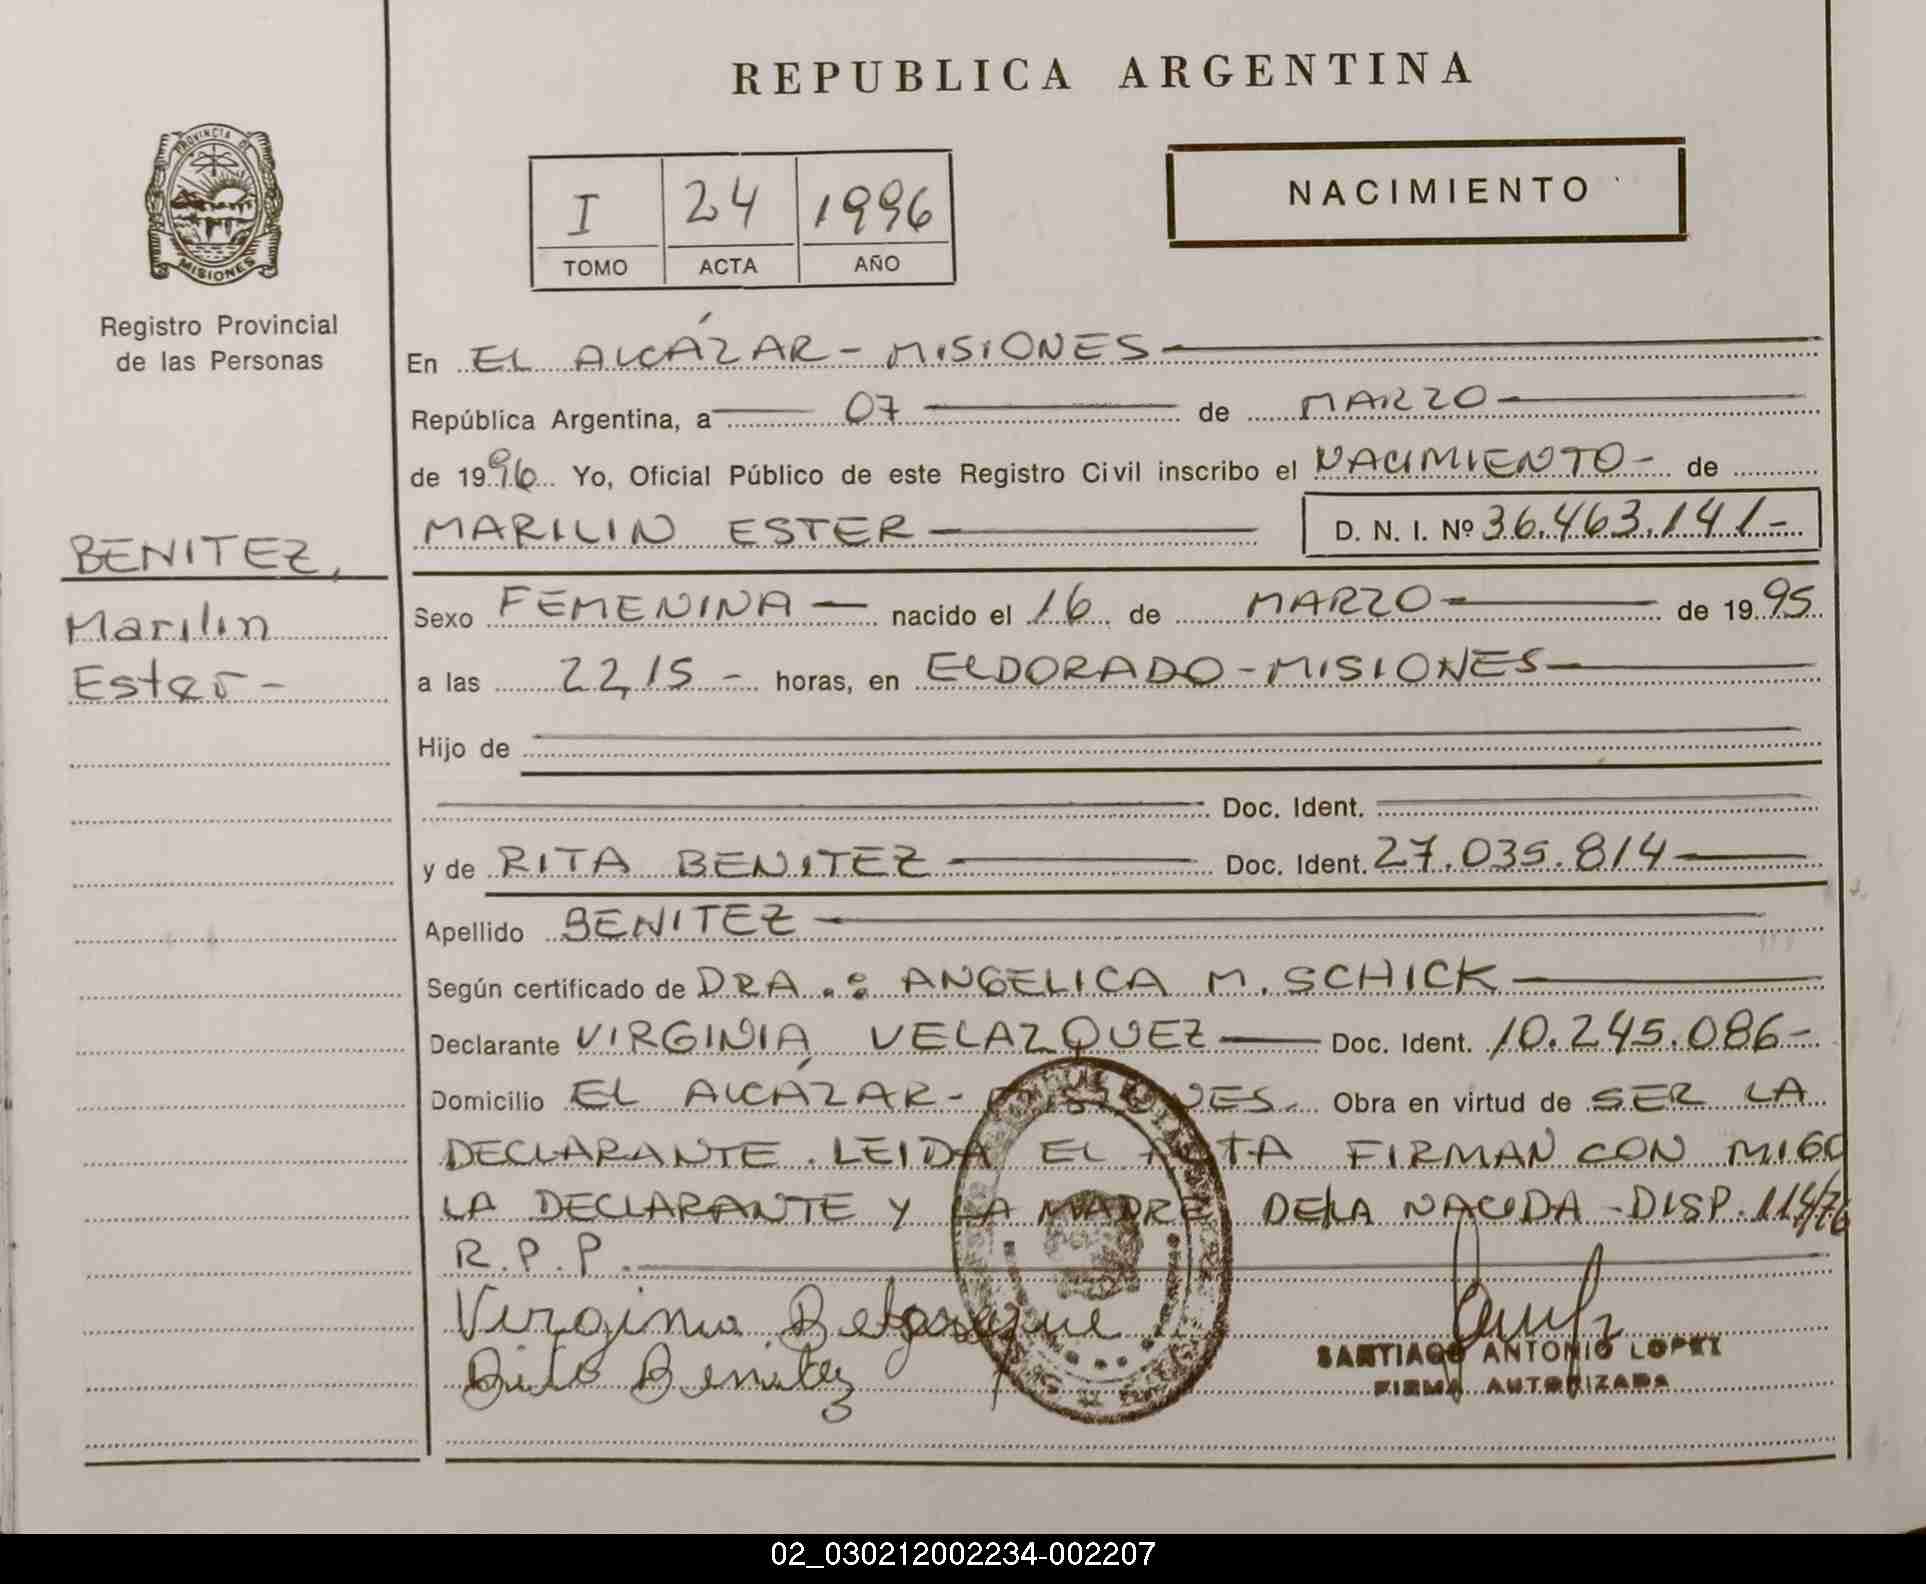 REPUBLICA ARGENTINA
PROVINCIA DE
MISIONES
Registro Provincial
de las Personas
I 24 1996
TOMO ACTA AÑO
NACIMIENTO
En EL ALCÁZAR - MISIONES
República Argentina, a 07 de MARZO
de 1996 Yo, Oficial Público de este Registro Civil inscribo el NACIMIENTO - de
MARILIN ESTER D. N. I. Nº 36.463.141-
BENITEZ,
Marilin
Ester -
Sexo FEMENINA - nacido el 16 de MARZO - de 1995
a las 22,15 - horas, en ELDORADO - MISIONES -
Hijo de
Doc. Ident.
y de RITA BENITEZ Doc. Ident. 27.035.814
Apellido BENITEZ
Según certificado de DRA.: ANGELICA M. SCHICK
Declarante VIRGINIA VELAZQUEZ Doc. Ident. 10.245.086-
Domicilio EL ALCÁZAR - MISIONES. Obra en virtud de SER LA
DECLARANTE. LEIDA EL ACTA FIRMAN CON MIGO
LA DECLARANTE Y LA MADRE DE LA NACIDA - DISP. 114/76
R.P.P.
Virginia
Benitez
SANTIAGO ANTONIO LOPEZ
FIRMA AUTORIZADA
02_030212002234-002207